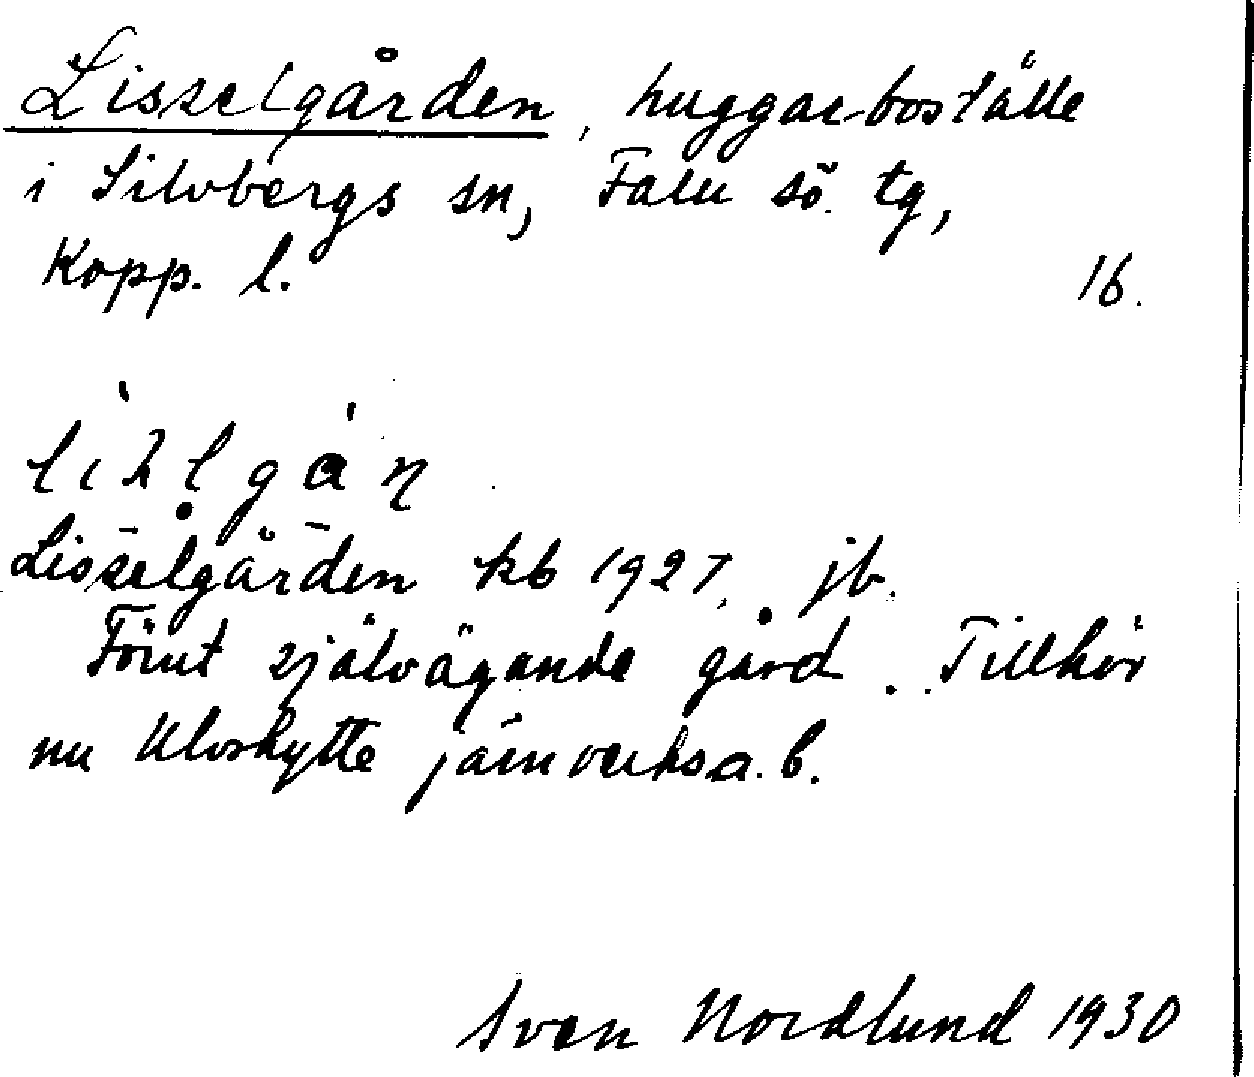 Lisselgården, huggarboställe
i Silvbergs sn, Falu sö. tg,
Kopp. l. 16.
Lisselgården kb 1927, jb.
Förut självägande gård. Tillhör
nu Ulvshytte järnverksa.b.
Sven Nordlund 1930